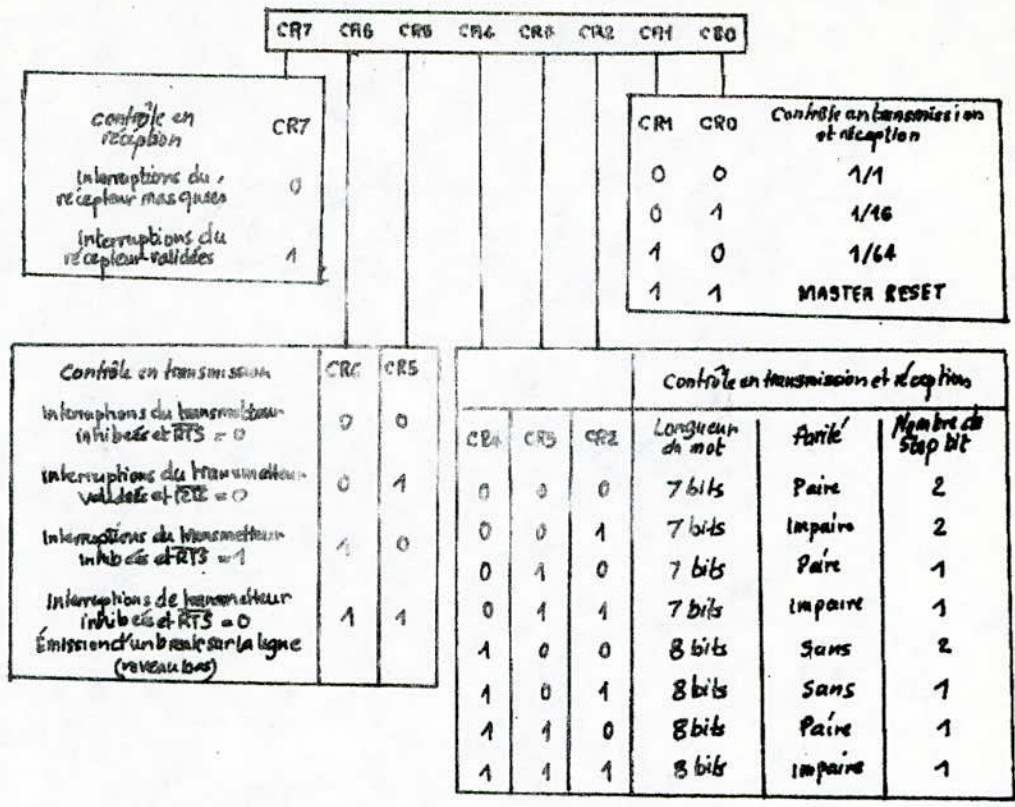 CR7 CR6 CR5 CR4 CR3 CR2 CR1 CR0
Contrôle en
réception
CR7
Interruptions du
récepteur masquées
0
Interruptions du
récepteur validées
1
CR1 CR0 Contrôle en transmission
et réception
0 0 1/1
0 1 1/16
1 0 1/64
1 1 MASTER RESET
Contrôle en transmission CR6 CR5
Interruptions du transmetteur
inhibées et RTS = 0
0 0
Interruptions du transmetteur
validées et RTS = 0
0 1
Interruptions du transmetteur
inhibées et RTS = 1
1 0
Interruptions de transmetteur
inhibées et RTS = 0
1 1
Émission d'un break sur la ligne
(niveau bas)
Contrôle en transmission et réception
CR4 CR3 CR2 Longueur
de mot
Parité Nombre de
Stop bit
0 0 0 7 bits Paire 2
0 0 1 7 bits Impaire 2
0 1 0 7 bits Paire 1
0 1 1 7 bits Impaire 1
1 0 0 8 bits Sans 2
1 0 1 8 bits Sans 1
1 1 0 8 bits Paire 1
1 1 1 8 bits Impaire 1